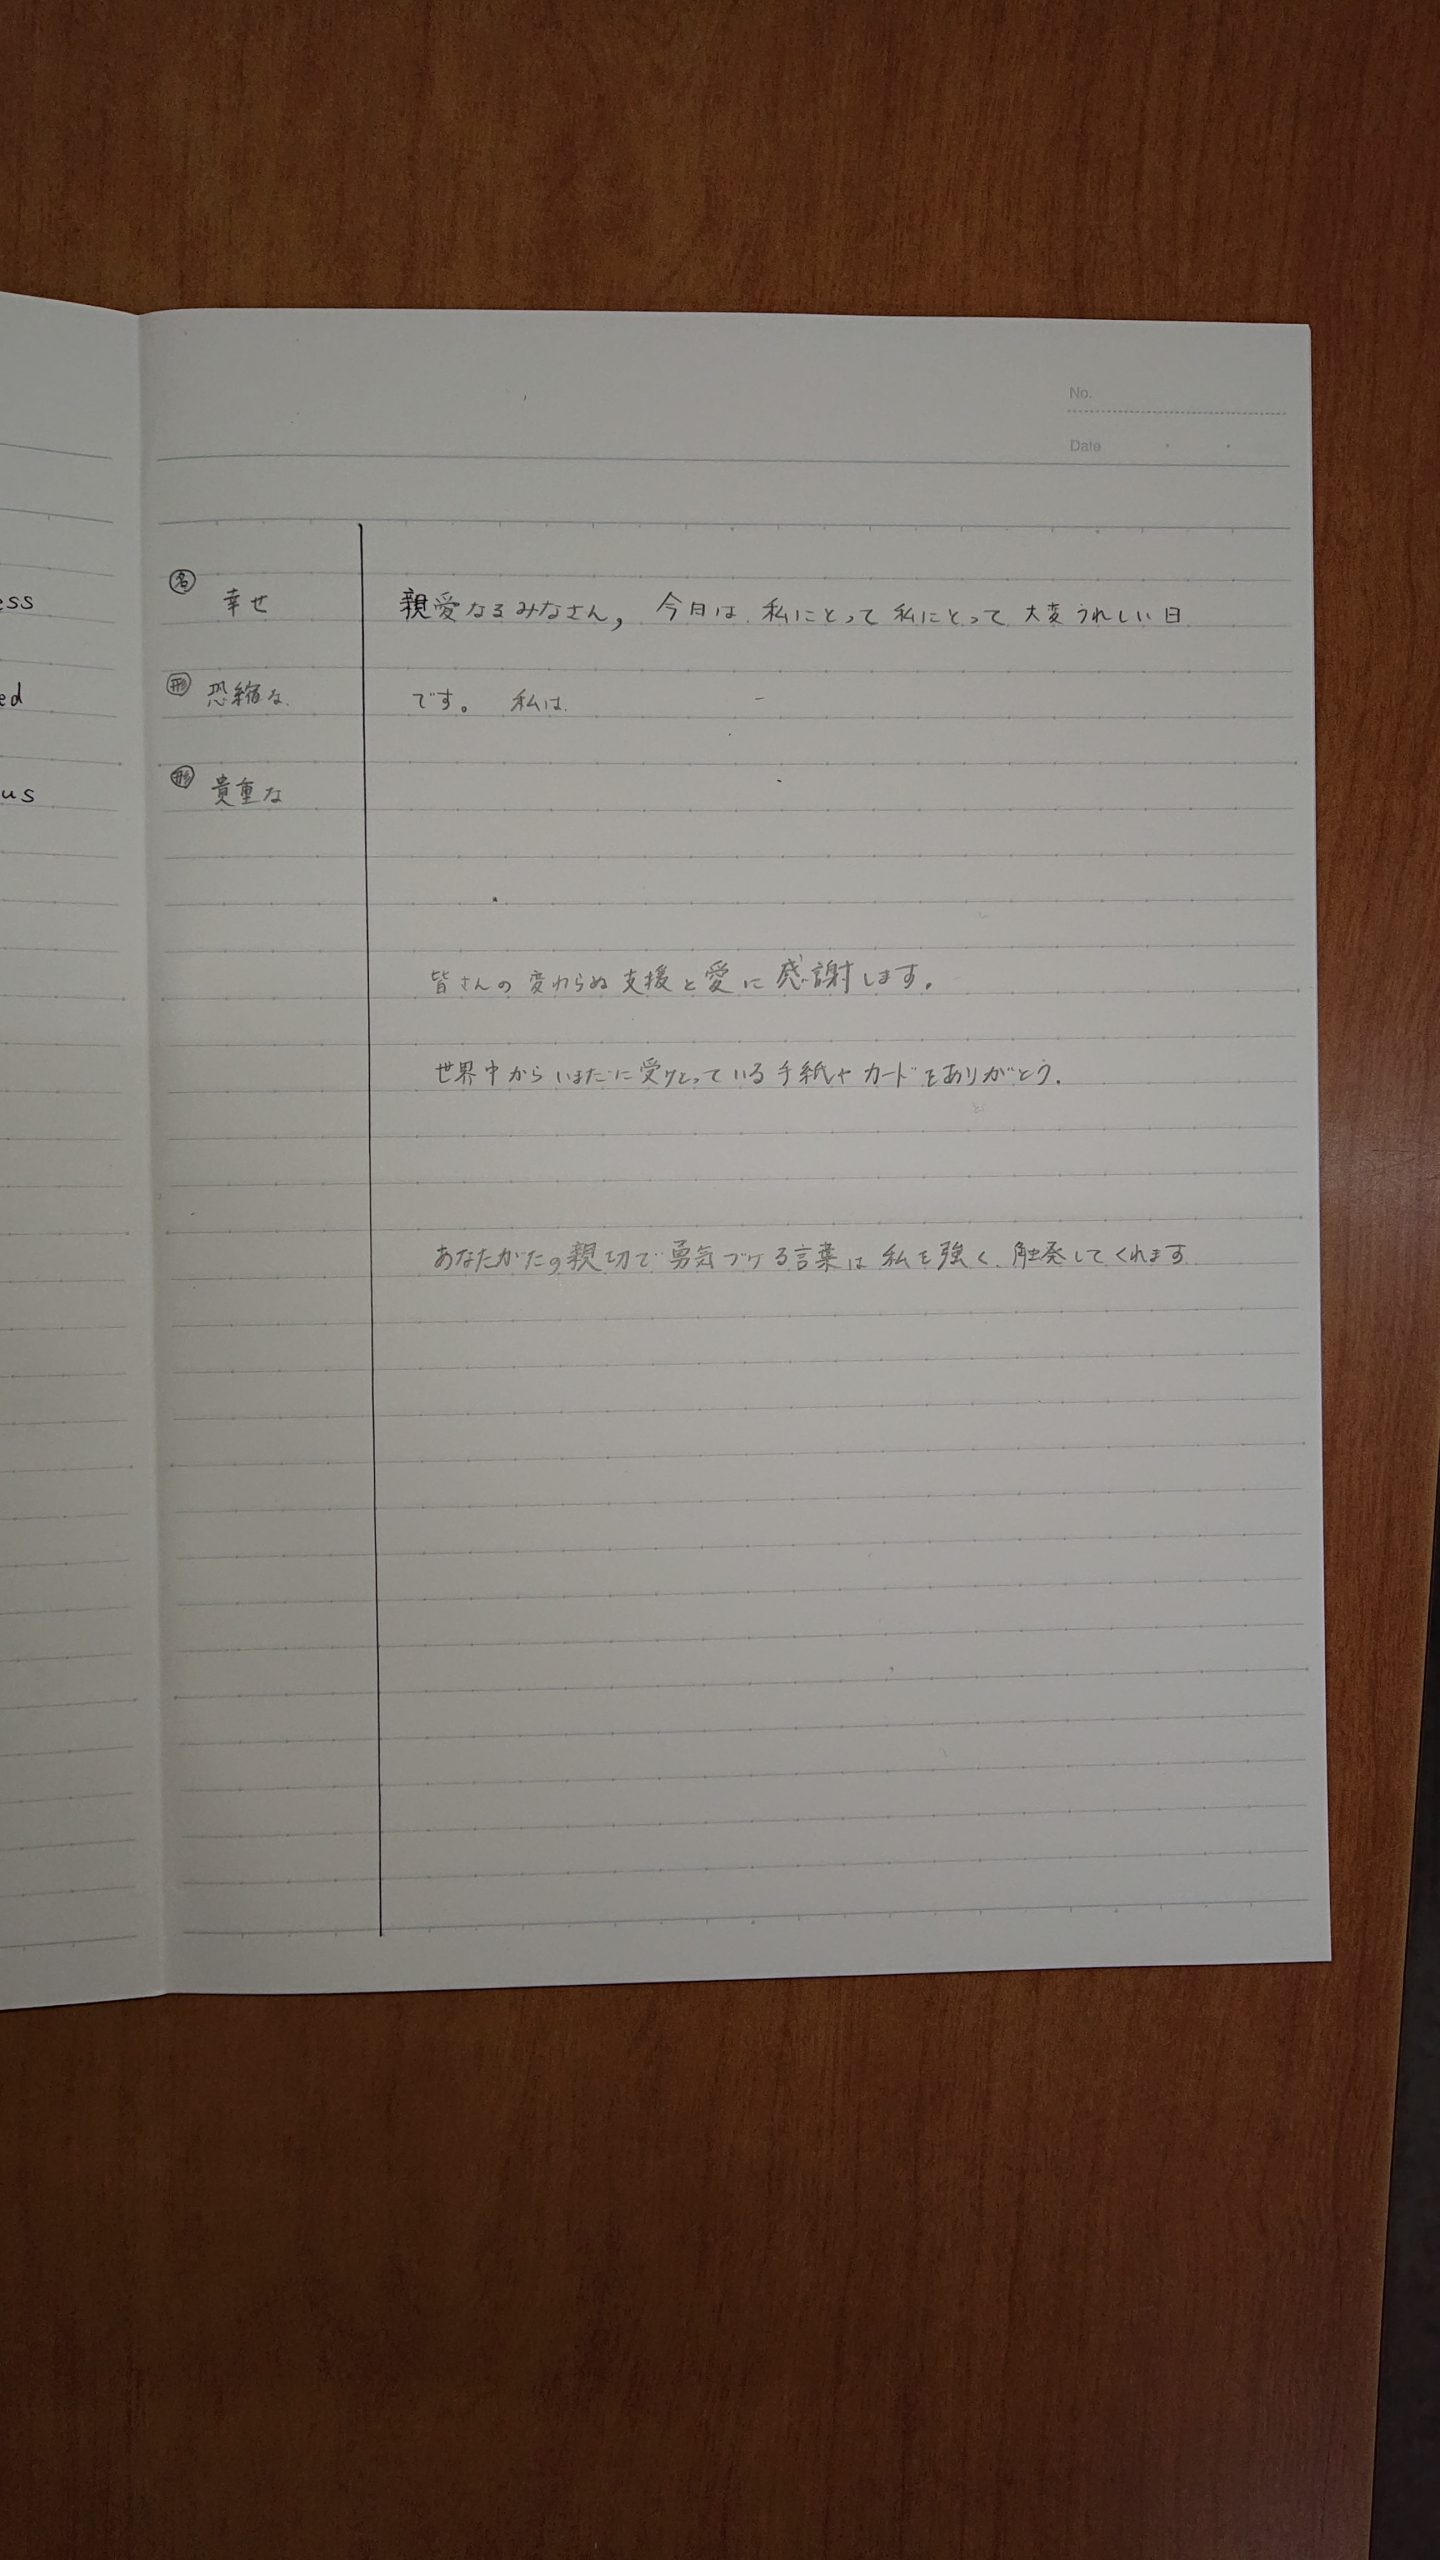 ess
ed
us
No.
Date
名 幸せ
形 恐縮な
形 貴重な
親愛なるみなさん, 今日は 私にとって 私にとって 大変うれしい日
です。 私は
皆さんの変わらぬ支援と愛に感謝します。
世界中からいまだに受けとっている手紙やカードをありがとう.
あなたがたの親切で勇気づける言葉は私を強く触発してくれます